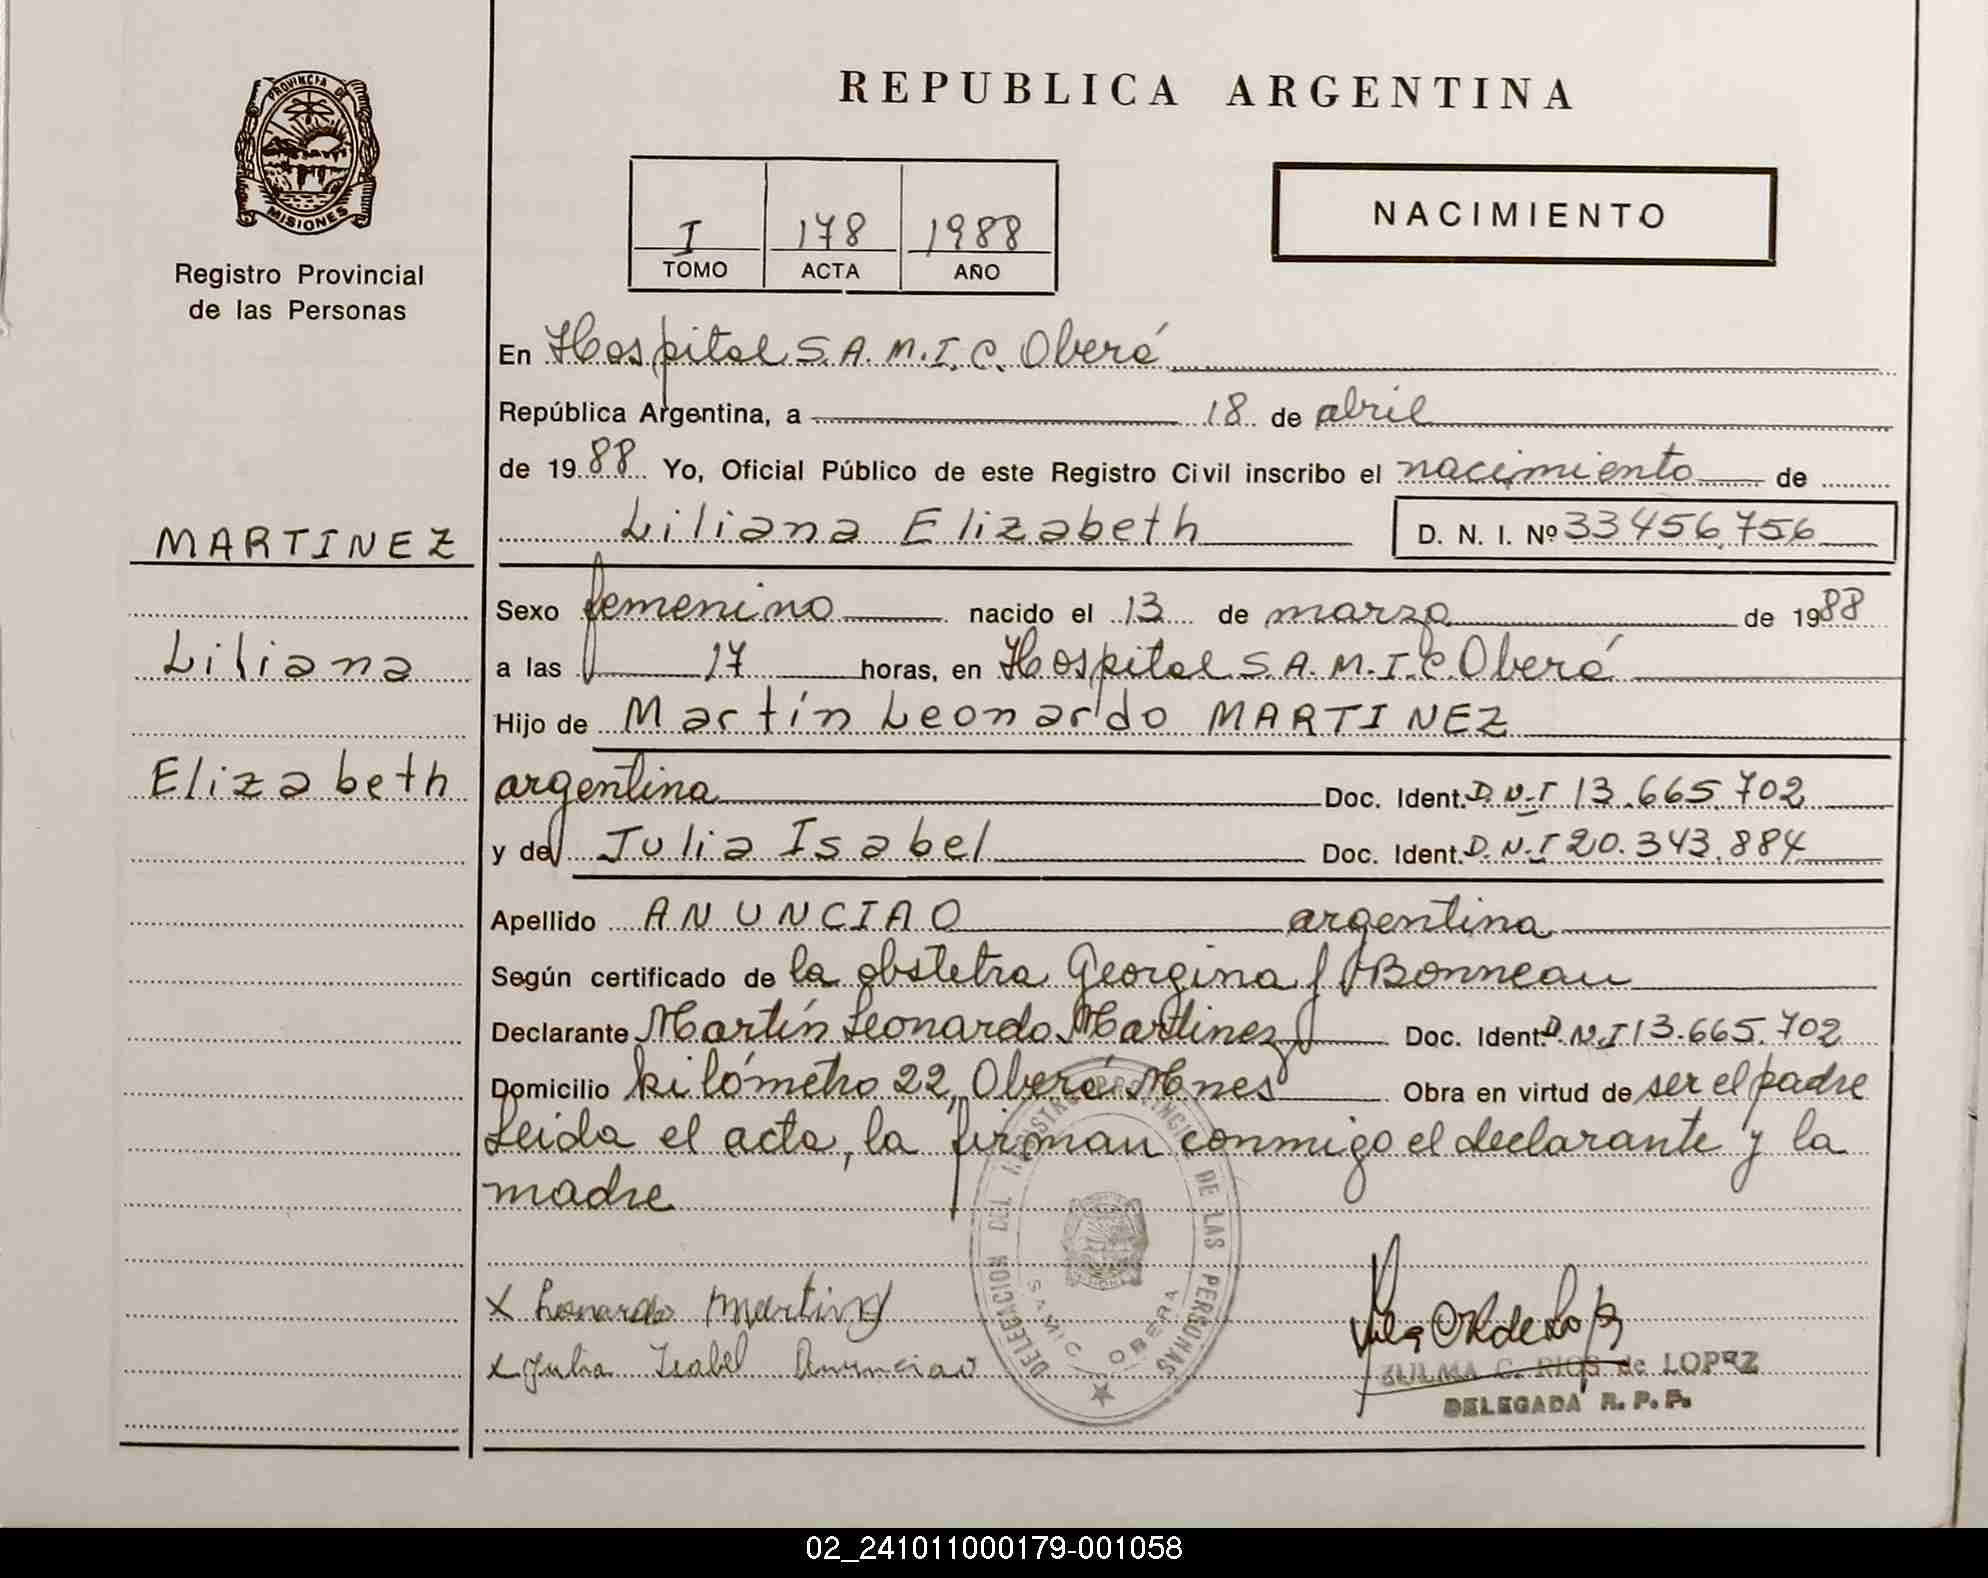 REPUBLICA ARGENTINA
PROVINCIA DE
MISIONES
Registro Provincial
de las Personas
I 178 1988
TOMO ACTA AÑO
NACIMIENTO
En Hospital S.A.M.I.C. Oberá
República Argentina, a 18 de abril
de 1988 Yo, Oficial Público de este Registro Civil inscribo el nacimiento de
MARTINEZ
Liliana Elizabeth D. N. I. Nº 33456.756
Sexo femenino nacido el 13 de marzo de 1988
Liliana
a las 17 horas, en Hospital S.A.M.I.C. Oberá
Hijo de Martín Leonardo MARTINEZ
Elizabeth
argentina Doc. Ident. D.N.I 13.665.702
y de Julia Isabel Doc. Ident. D.N.I 20.343.884
Apellido ANUNCIAO argentina
Según certificado de la obstetra Georgina J Bonneau
Declarante Martín Leonardo Martinez Doc. Ident. D.N.I 13.665.702
Domicilio kilómetro 22, Oberá Mnes Obra en virtud de ser el padre
Leida el acta, la firman conmigo el declarante y la
madre
DELEGACION DEL REGISTRO PROVINCIAL DE LAS PERSONAS
SAMIC OBERA
x Leonardo Martinez
x Julia Isabel Anunciao
ZULMA C. RIOS de LOPEZ
DELEGADA R. P. P.
02_241011000179-001058